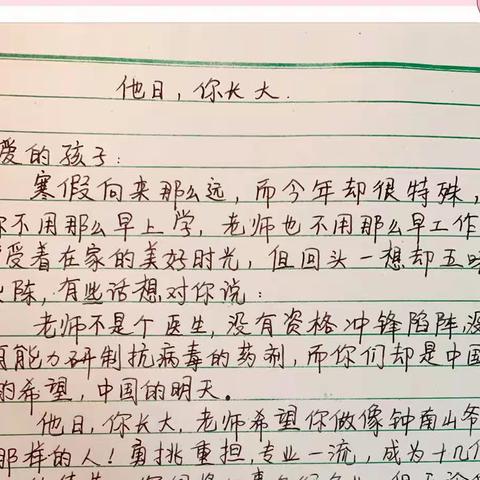 他日，你长大．
爱的孩子：
寒假向来那么远，而今年却很特殊，
你不用那么早上学，老师也不用那么早工作
受着在家的美好时光，但回头一想却五味
陈，有些话想对你说：
老师不是个医生，没有资格冲锋陷阵，没
能力研制抗病毒的药剂，而你们却是中国
的希望，中国的明天。
他日，你长大，老师希望你做像钟南山爷
那样的人！勇挑重担，专业一流，成为十几亿